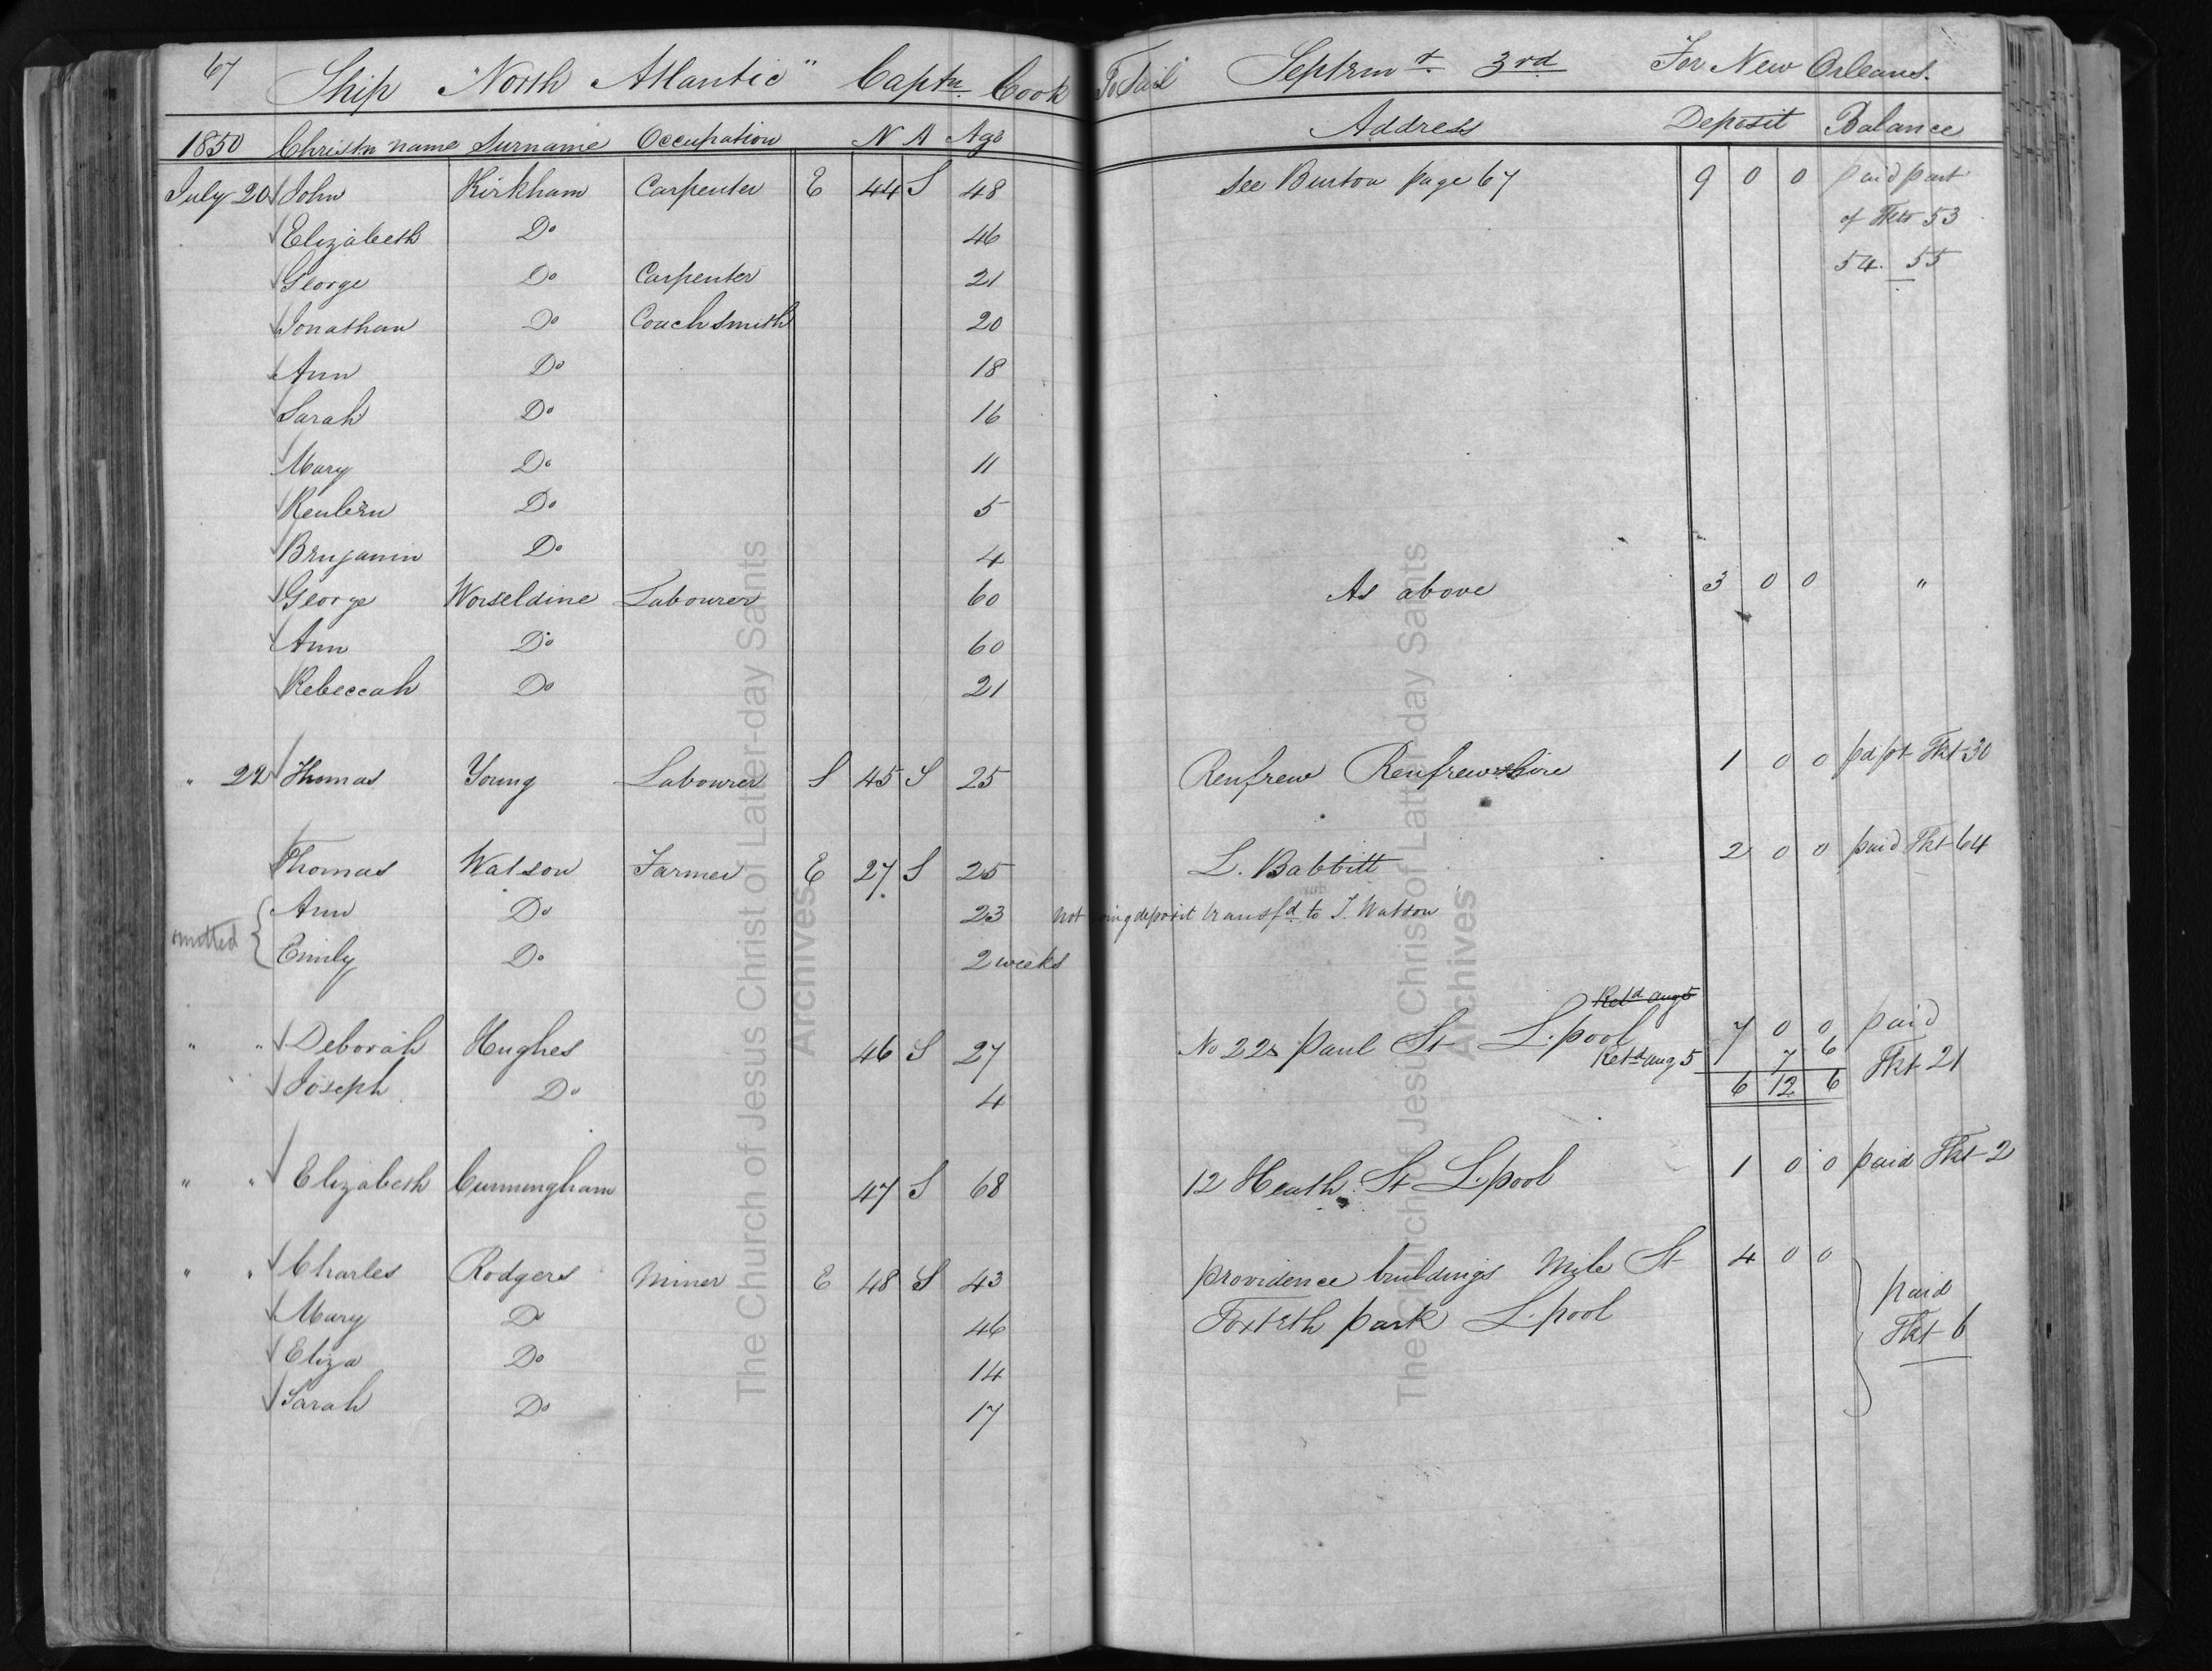 67 Ship "North Atlantic" Captn. Cook To Sail Septem r. 3rd For New Orleans.
1850 Christn name Surname Occupation N A Age Address Deposit Balance
July 20 John Kirkham Carpenter E 44 S 48 See Burton page 67 9 0 0 paid part
Elizabeth Do 46 of Tkts 53
George Do Carpenter 21 54. 55
Jonathan Do Coachsmith 20
Ann Do 18
Sarah Do 16
Mary Do 11
Reuben Do 5
Benjamin Do 4
George Worseldine Labourer 60 As above 3 0 0 "
Ann Do 60
Rebeccah Do 21
" 22 Thomas Young Labourer S 45 S 25 Renfrew Renfrewshire 1 0 0 pd pt Tkt 30
Thomas Watson Farmer E 27 S 25 L. Babbitt 2 0 0 paid Tkt 64
omitted { Ann Do 23 not going deposit transfd to T. Watson
Emily Do 2 weeks
Retd aug 5
" " Deborah Hughes 46 S 27 No 22 Paul St L.pool 7 0 0 paid
Retd aug 5 7 6
" " Joseph Do 4 6 12 6 Tkt 21
" " Elizabeth Cunningham 47 S 68 12 Heath St L.pool 1 0 0 paid Tkt 2
" " Charles Rodgers Miner E 48 S 43 providence buildings Mile St 4 0 0 paid
Mary Do 46 Toxteth park L.pool Tkt 6
Eliza Do 14
Sarah Do 17
The Church of Jesus Christ of Latter-day Saints
Archives
The Church of Jesus Christ of Latter-day Saints
Archives